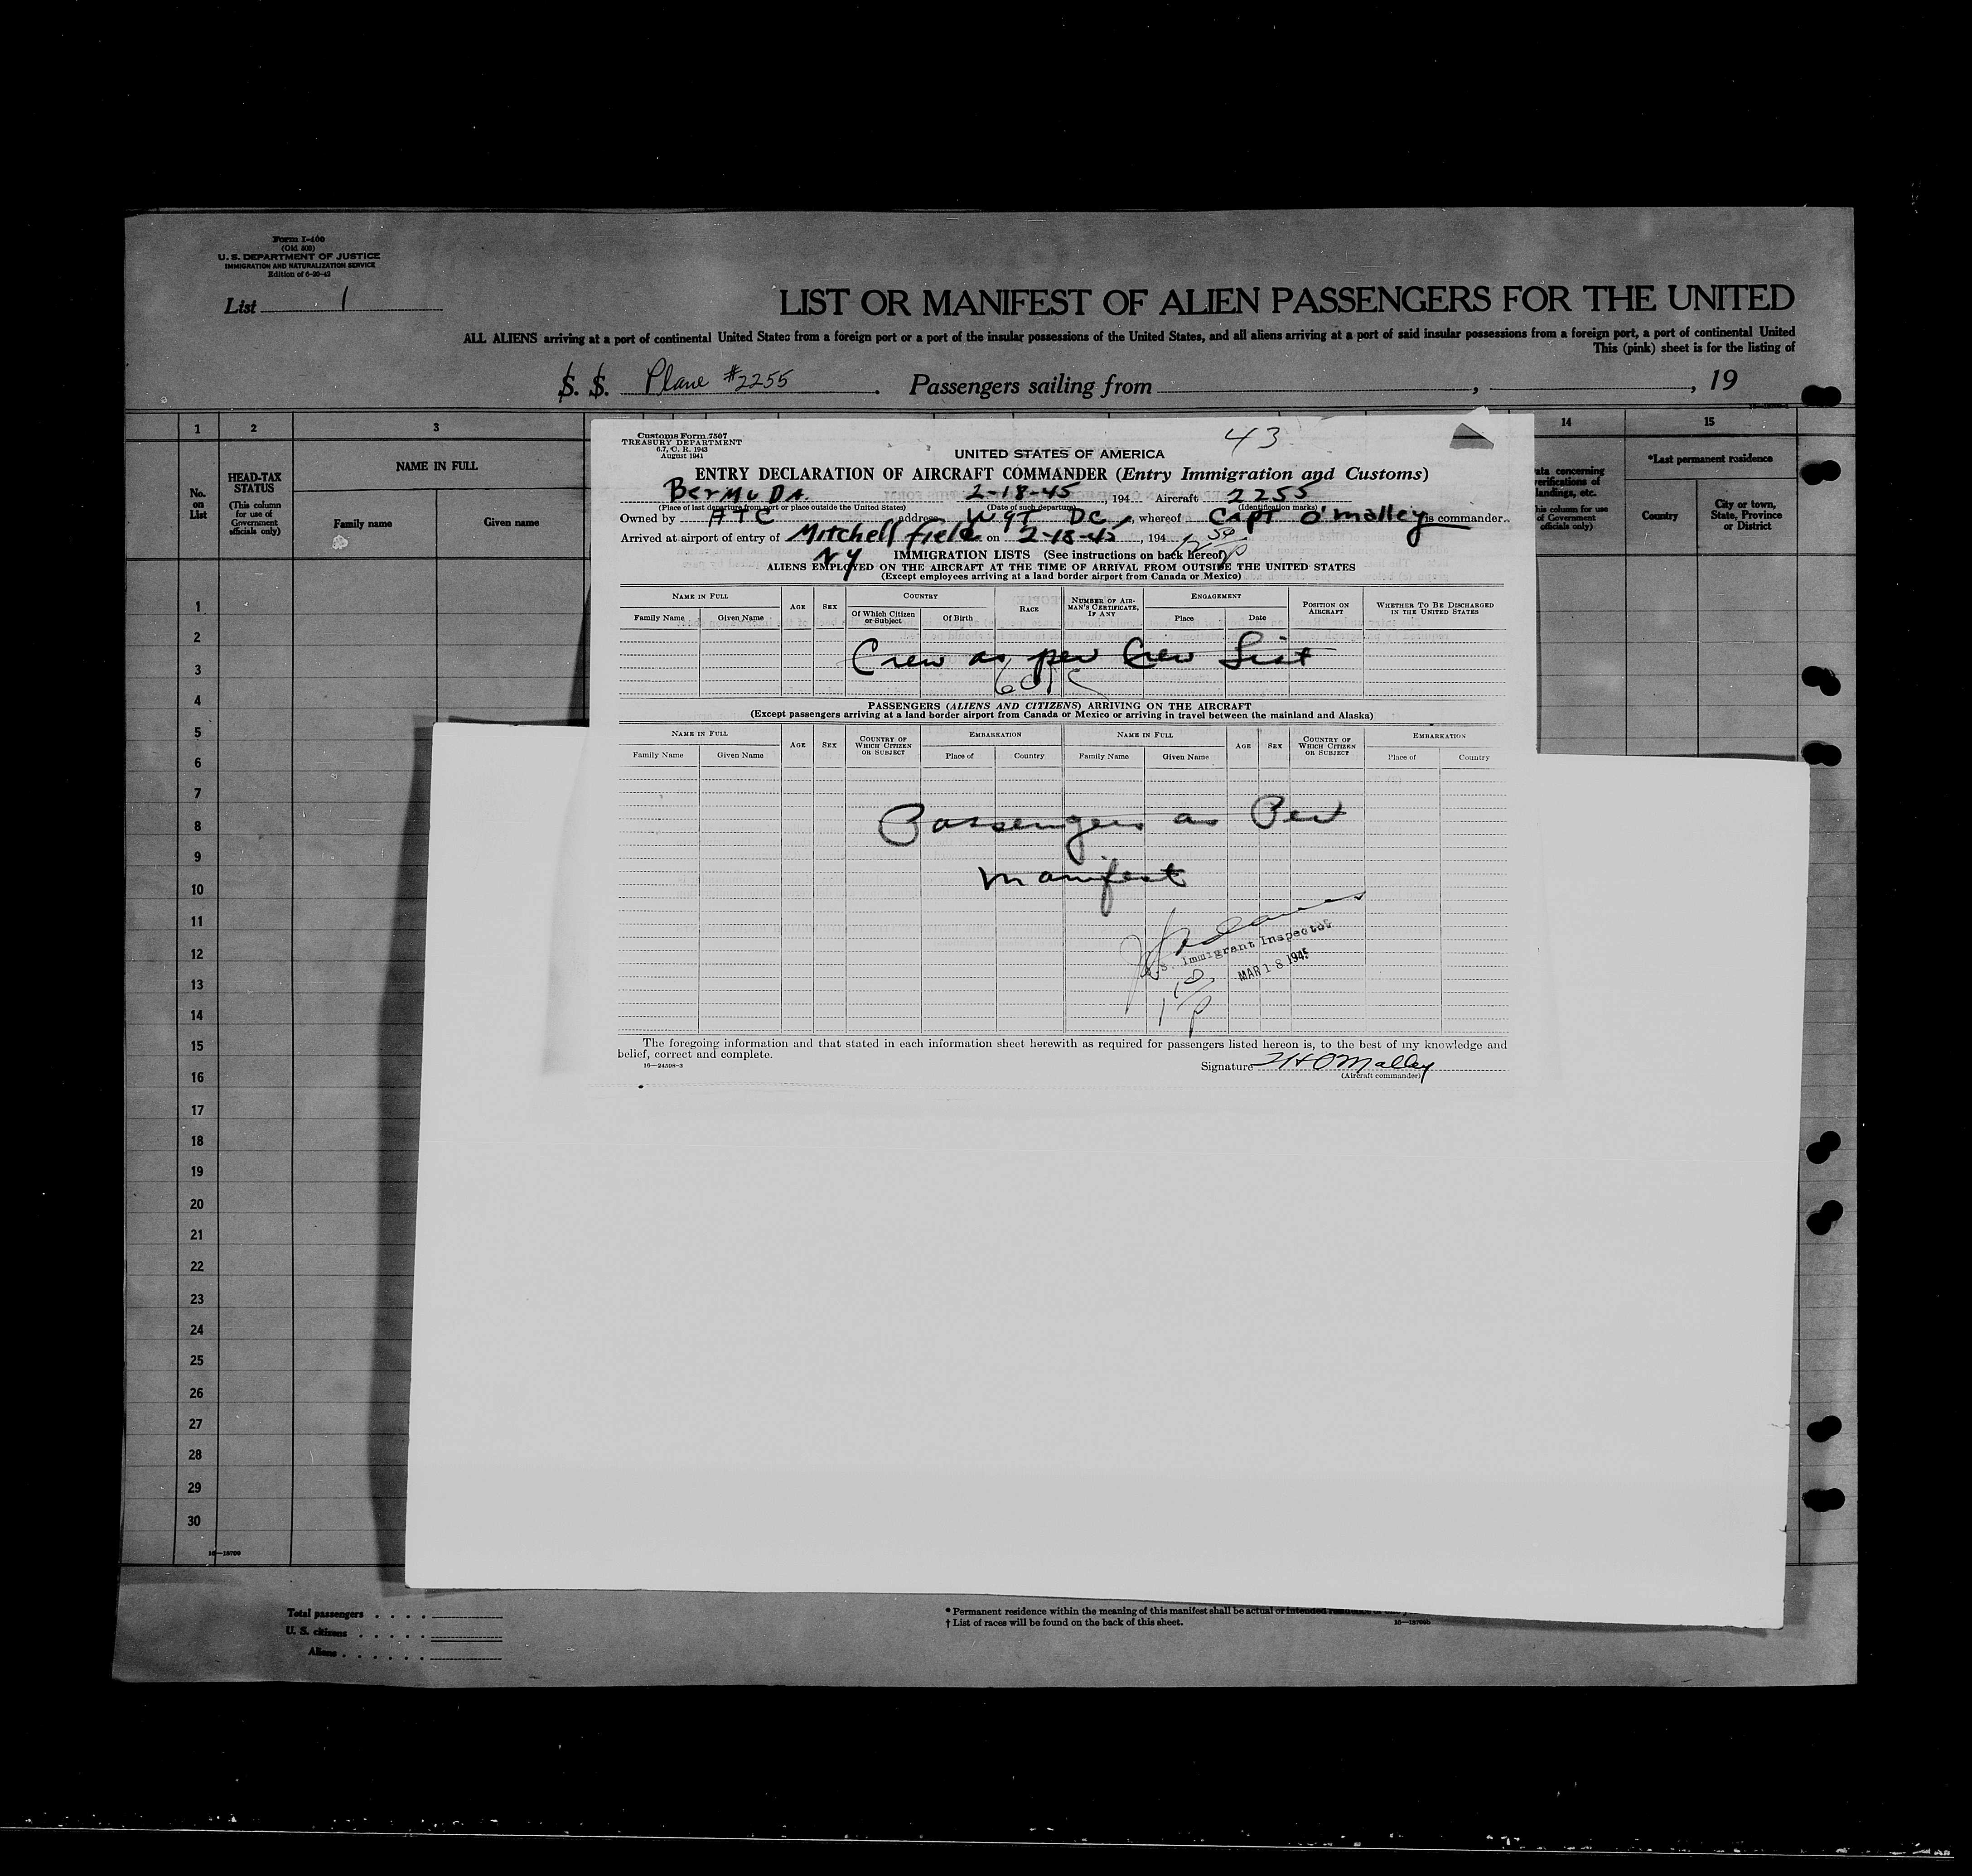 Form I-400
(Old 500)
U. S. DEPARTMENT OF JUSTICE
IMMIGRATION AND NATURALIZATION SERVICE
Edition of 6-20-42
List 1
LIST OR MANIFEST OF ALIEN PASSENGERS FOR THE UNITED
ALL ALIENS arriving at a port of continental United States from a foreign port or a port of the insular possessions of the United States, and all aliens arriving at a port of said insular possessions from a foreign port, a port of continental United
This (pink) sheet is for the listing of
S. S. Plane #2255. Passengers sailing from , , 19
1 2 3 14 15
HEAD-TAX STATUS
(This column for use of Government officials only)
NAME IN FULL
No. on List
Family name Given name
*Last permanent residence
Country
City or town, State, Province or District
Customs Form 7507
TREASURY DEPARTMENT
6.7, C. R. 1943
August 1941
43
UNITED STATES OF AMERICA
ENTRY DECLARATION OF AIRCRAFT COMMANDER (Entry Immigration and Customs)
BermuDA 2-18-45, 194 Aircraft 2255
(Place of last departure from port or place outside the United States) (Date of such departure) (Identification marks)
Owned by ATC address WgT DC, whereof CApT O'malley is commander.
Arrived at airport of entry of Mitchell field on 2-18-45, 194
NY
IMMIGRATION LISTS (See instructions on back hereof)
ALIENS EMPLOYED ON THE AIRCRAFT AT THE TIME OF ARRIVAL FROM OUTSIDE THE UNITED STATES
(Except employees arriving at a land border airport from Canada or Mexico)
NAME IN FULL AGE SEX COUNTRY RACE NUMBER OF AIRMAN'S CERTIFICATE, IF ANY ENGAGEMENT POSITION ON AIRCRAFT WHETHER TO BE DISCHARGED IN THE UNITED STATES
Family Name Given Name Of Which Citizen or Subject Of Birth Place Date
Crew as per Crew List
PASSENGERS (ALIENS AND CITIZENS) ARRIVING ON THE AIRCRAFT
(Except passengers arriving at a land border airport from Canada or Mexico or arriving in travel between the mainland and Alaska)
NAME IN FULL AGE SEX COUNTRY OF WHICH CITIZEN OR SUBJECT EMBARKATION NAME IN FULL AGE SEX COUNTRY OF WHICH CITIZEN OR SUBJECT EMBARKATION
Family Name Given Name Place of Country Family Name Given Name Place of Country
Passengers as Per
manifest
S. Immigrant Inspector
MAR 18 1945
The foregoing information and that stated in each information sheet herewith as required for passengers listed hereon is, to the best of my knowledge and
belief, correct and complete.
16—24598-3
Signature HOMalley
(Aircraft commander)
1
2
3
4
5
6
7
8
9
10
11
12
13
14
15
16
17
18
19
20
21
22
23
24
25
26
27
28
29
30
16—18700
Total passengers
U. S. citizens
Aliens
* Permanent residence within the meaning of this manifest shall be actual or intended residence
† List of races will be found on the back of this sheet.